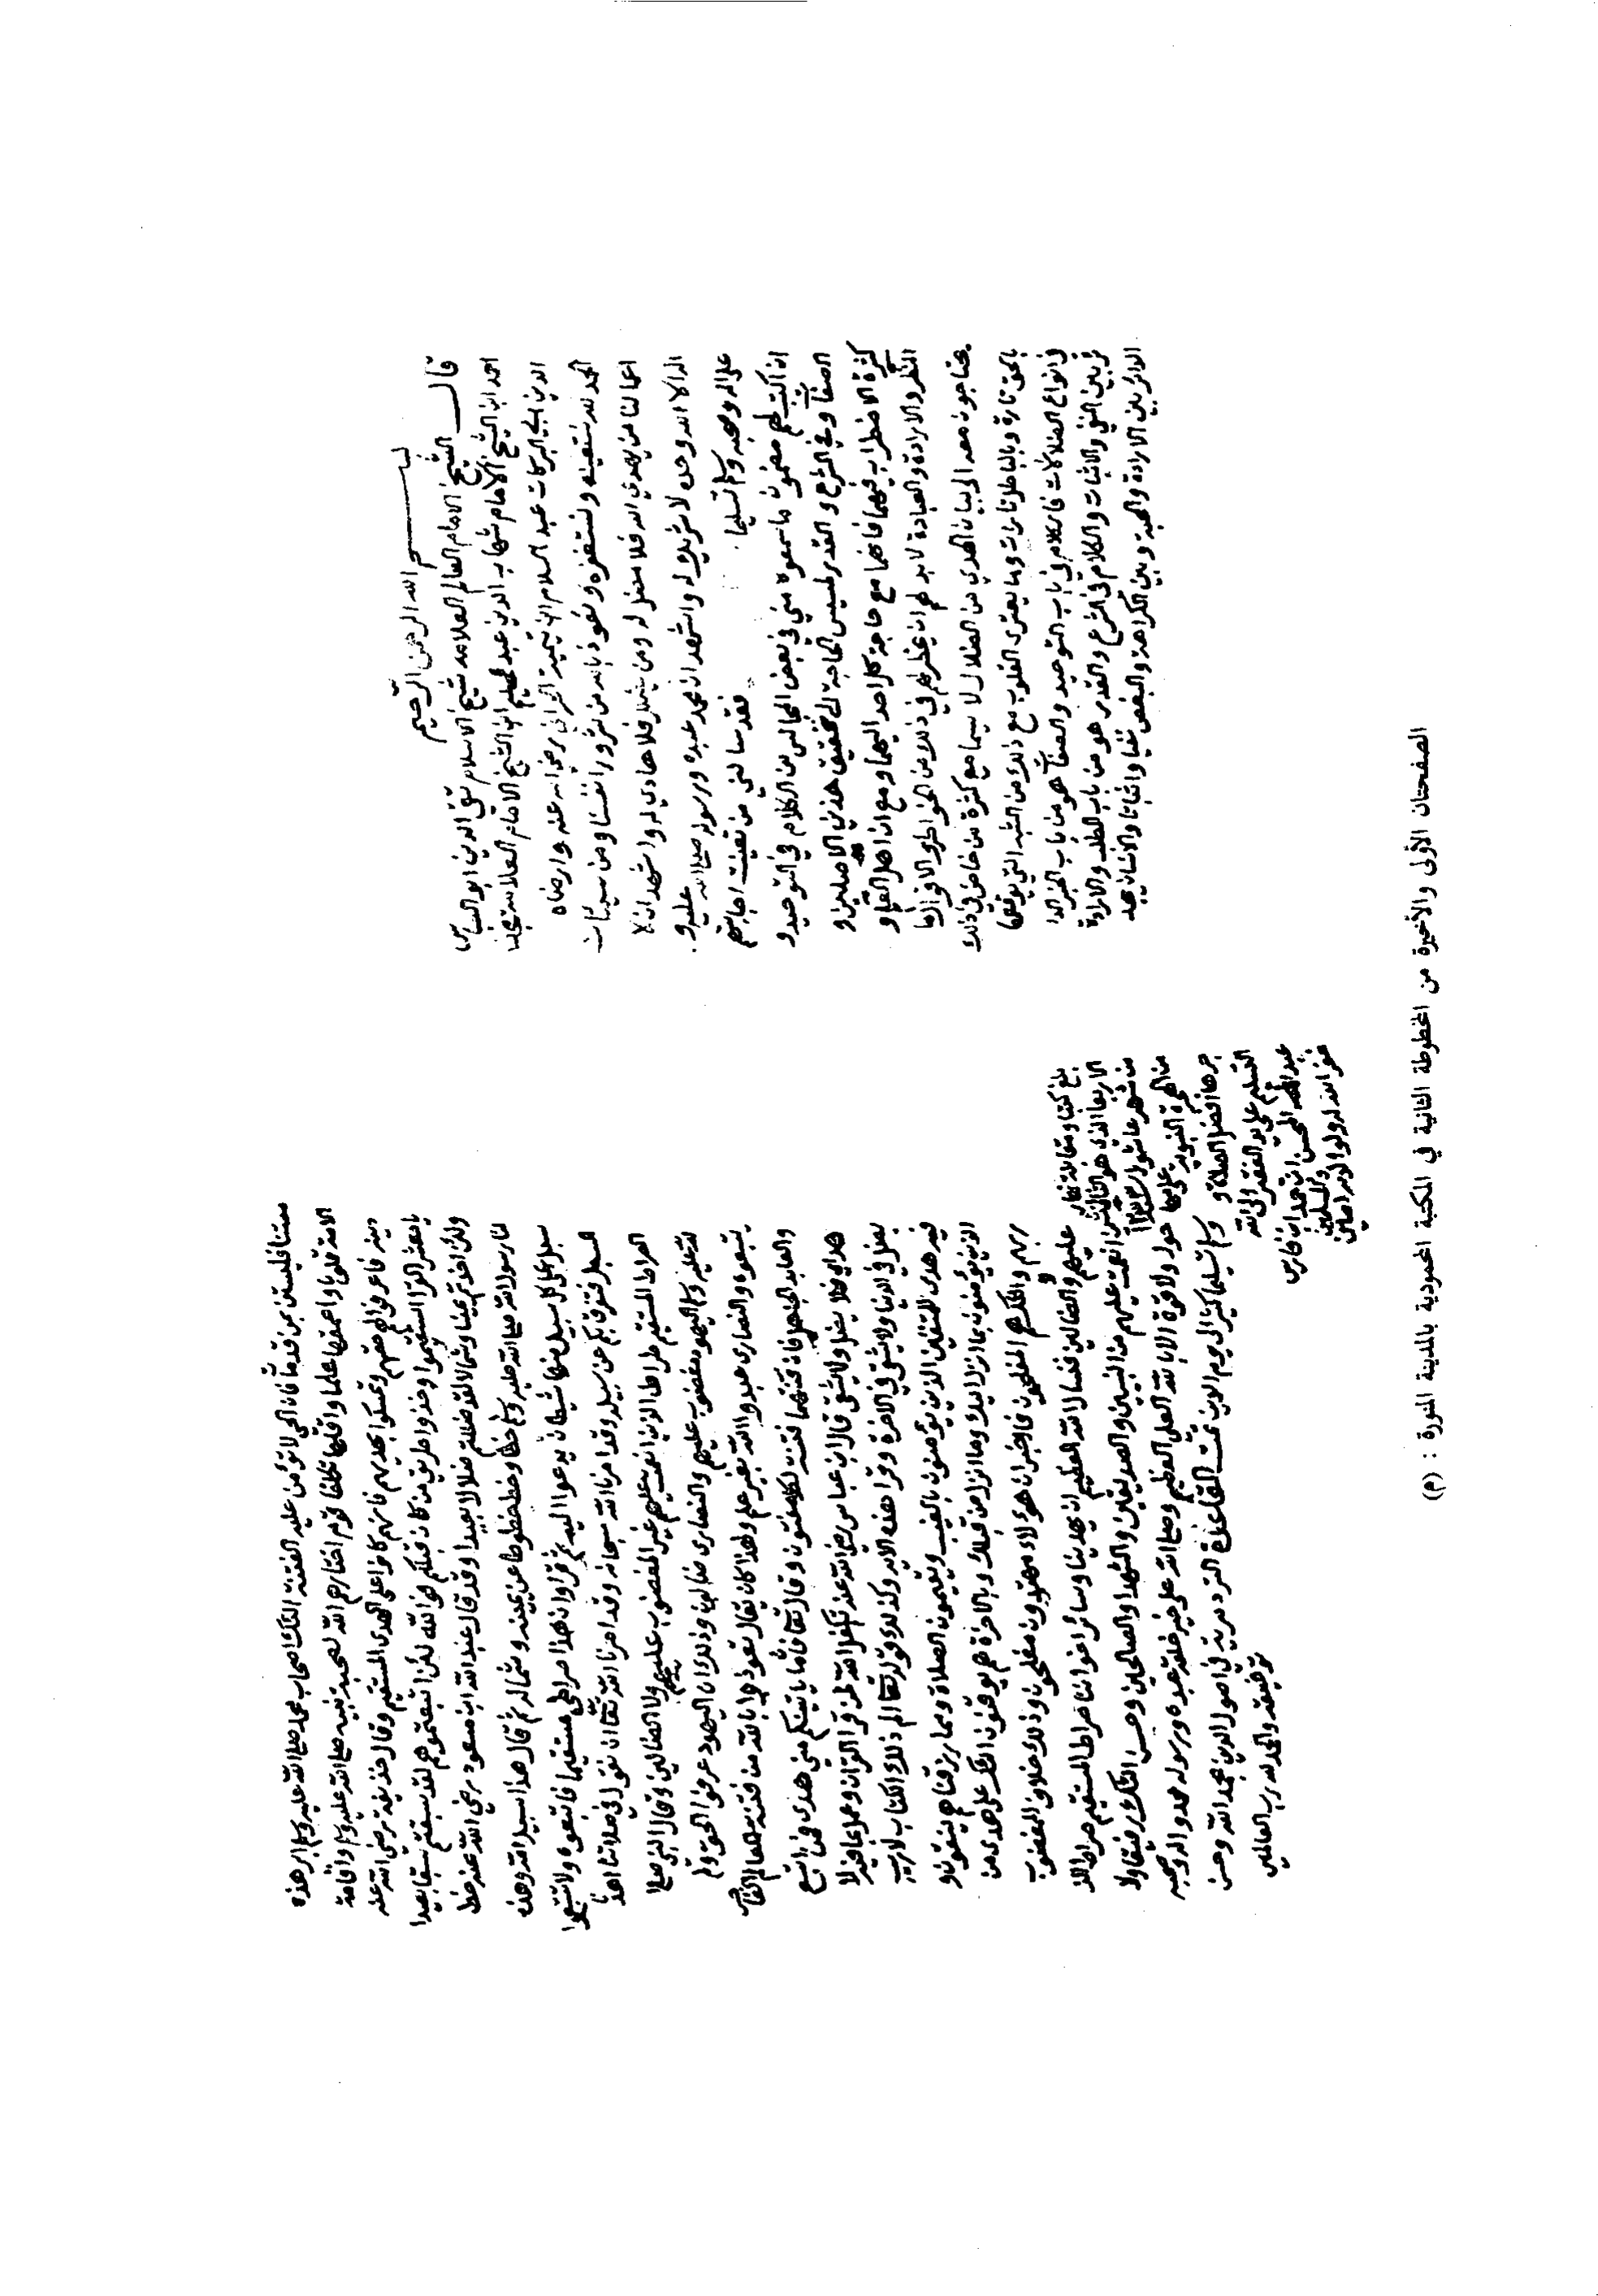 بسم الله الرحمن الرحيم
قال الشيخ الامام العالم العلامه شيخ الاسلام تقي الدين ابو العباس
احمد ابن الشيخ الامام شهاب الدين عبد الحليم ابن الشيخ الامام العلامه مجد
الدين ابي البركات عبد السلام ابن تيمية الحراني رضي الله عنه وارضاه
الحمد لله نستعينه ونستغفره ونعوذ بالله من شرور انفسنا ومن سيئات
اعمالنا من يهدي الله فلا مضل له ومن يضلل فلا هادي له واشهد ان لا
اله الا الله وحده لا شريك له واشهد ان محمد عبده ورسوله صلى الله عليه و
على اله وصحبه وسلم تسليما . فقد سالني من تعينت اجابتهم
ان اكتب لهم مضمون ما سمعوه مني في بعض المجالس من الكلام في التوحيد و
الصفات وفي الشرع والقدر لمسيس الحاجة الى تحقيق هذين الاصلين و
كثرة الاضطراب فيهما فانهما مع حاجة كل احد اليهما ومع ان اهل العلم و
النظر والارادة والعبادة لا بد لهم ان يخطر لهم في ذلك من الخواطر والاقوال ما
يحتاجون معه الى بيان الهدي من الضلال لا سيما مع كثرة من خاض في ذلك
بالحق تارة وبالباطل تارات وما يعتري القلوب مع ذلك من الشبه التي توقعها
في انواع الضلالات فالكلام في باب التوحيد والصفات هو من باب الخبر الدا
ئر بين النفي والاثبات والكلام في الشرع والقدر هو من باب الطلب والارادة
الدائر بين الارادة والمحبة وبين الكراهة والبغض نفيا واثباتا والانسان يجد
مستنا فليستن بمن قد مات فان الحي لا تؤمن عليه الفتنة اولئك اصحاب محمد صلى الله عليه وسلم ابر هذه
الامة قلوبا واعمقها علما واقلها تكلفا قوم اختارهم الله لصحبة نبيه صلى الله عليه وسلم واقامة
دينه فاعرفوا لهم حقهم وتمسكوا بهديهم فانهم كانوا على الهدى المستقيم وقال حذيفة رضي الله عنه
يا معشر القرا استقيموا وخذوا طريق من كان قبلكم فو الله لئن اتبعتموهم لقد سبقتم سبقا بعيدا
ولئن اخذتم يمينا وشمالا لقد ضللتم ضلالا بعيدا وقد قال عبد الله ابن مسعود رضي الله عنه خط
لنا رسول الله صلى الله عليه وسلم خطا وخط خطوطا عن يمينه وشماله ثم قال هذا سبيل الله وهذه
سبل على كل سبيل منها شيطان يدعوا اليه ثم قرا وان هذا صراطي مستقيما فاتبعوه ولا تتبعوا
السبل فتفرق بكم عن سبيله وقد امرنا الله سبحانه وقد امرنا الله تعالى ان نقول في صلاتنا اهدنا
الصراط المستقيم صراط الذين انعمت عليهم غير المغضوب عليهم ولا الضالين وقال النبي صلى ا
لله عليه وسلم اليهود مغضوب عليهم والنصارى ضالين وذلك ان اليهود عرفوا الحق ولم
يتبعوه والنصارى عبدوا الله بغير علم ولهذا كان يقال تعوذوا بالله من فتنة العالم الفاجر
والعابد الجاهل فان فتنتهما فتنة لكل مفتون وقال تعالى فاما ياتينكم مني هدى فمن اتبع
هداي فلا يضل ولا يشقى قال ابن عباس رضي الله عنه تكفل الله لمن قرا القران وعمل بما فيه لا
يضل في الدنيا ولا يشقى في الاخرة وقرا هذه الايه وكذلك قوله تعالى الم ذلك الكتاب لا ريب
فيه هدى للمتقين الذين يؤمنون بالغيب ويقيمون الصلاة ومما رزقناهم ينفقون و
الذين يؤمنون بما انزل اليك وما انزل من قبلك وبالاخرة هم يوقنون اولئك على هدى من
ربهم واولئك هم المفلحون فاخبر ان هؤلاء مهتدون مفلحون وذلك خلاف المغضوب
عليهم والضالين فنسال الله العظيم ان يهدينا وسائر اخواننا صراط المستقيم صراط الذ
ين انعمت عليهم من النبيين والصديقين والشهدا والصالحين وحسن اولئك رفيقا ولا
حول ولا قوة الا بالله العلي العظيم وصلى الله على خير خلقه عبده ورسوله محمد واله وصحبه
وسلم تسليما كثيرا الى يوم الدين تمت القاعدة التدمرية في اصول الدين بحمد الله وحسن
توفيقه والحمد لله رب العالمين
بلغ كتبا ومقابلة نهار
الاربعا الذي هو الثالث
من شهر عاشور
من الهجرة النبوية على مها
جرها افضل الصلاة و
التسليم على يد الفقير الى الله
عبد المحسن ابن حمد ابن فارس
غفر الله له ولوالديه والمسلمين امين
الصفحتان الأولى والأخيرة من المخطوطة الثانية في المكتبة المحمودية بالمدينة المنورة : (م)